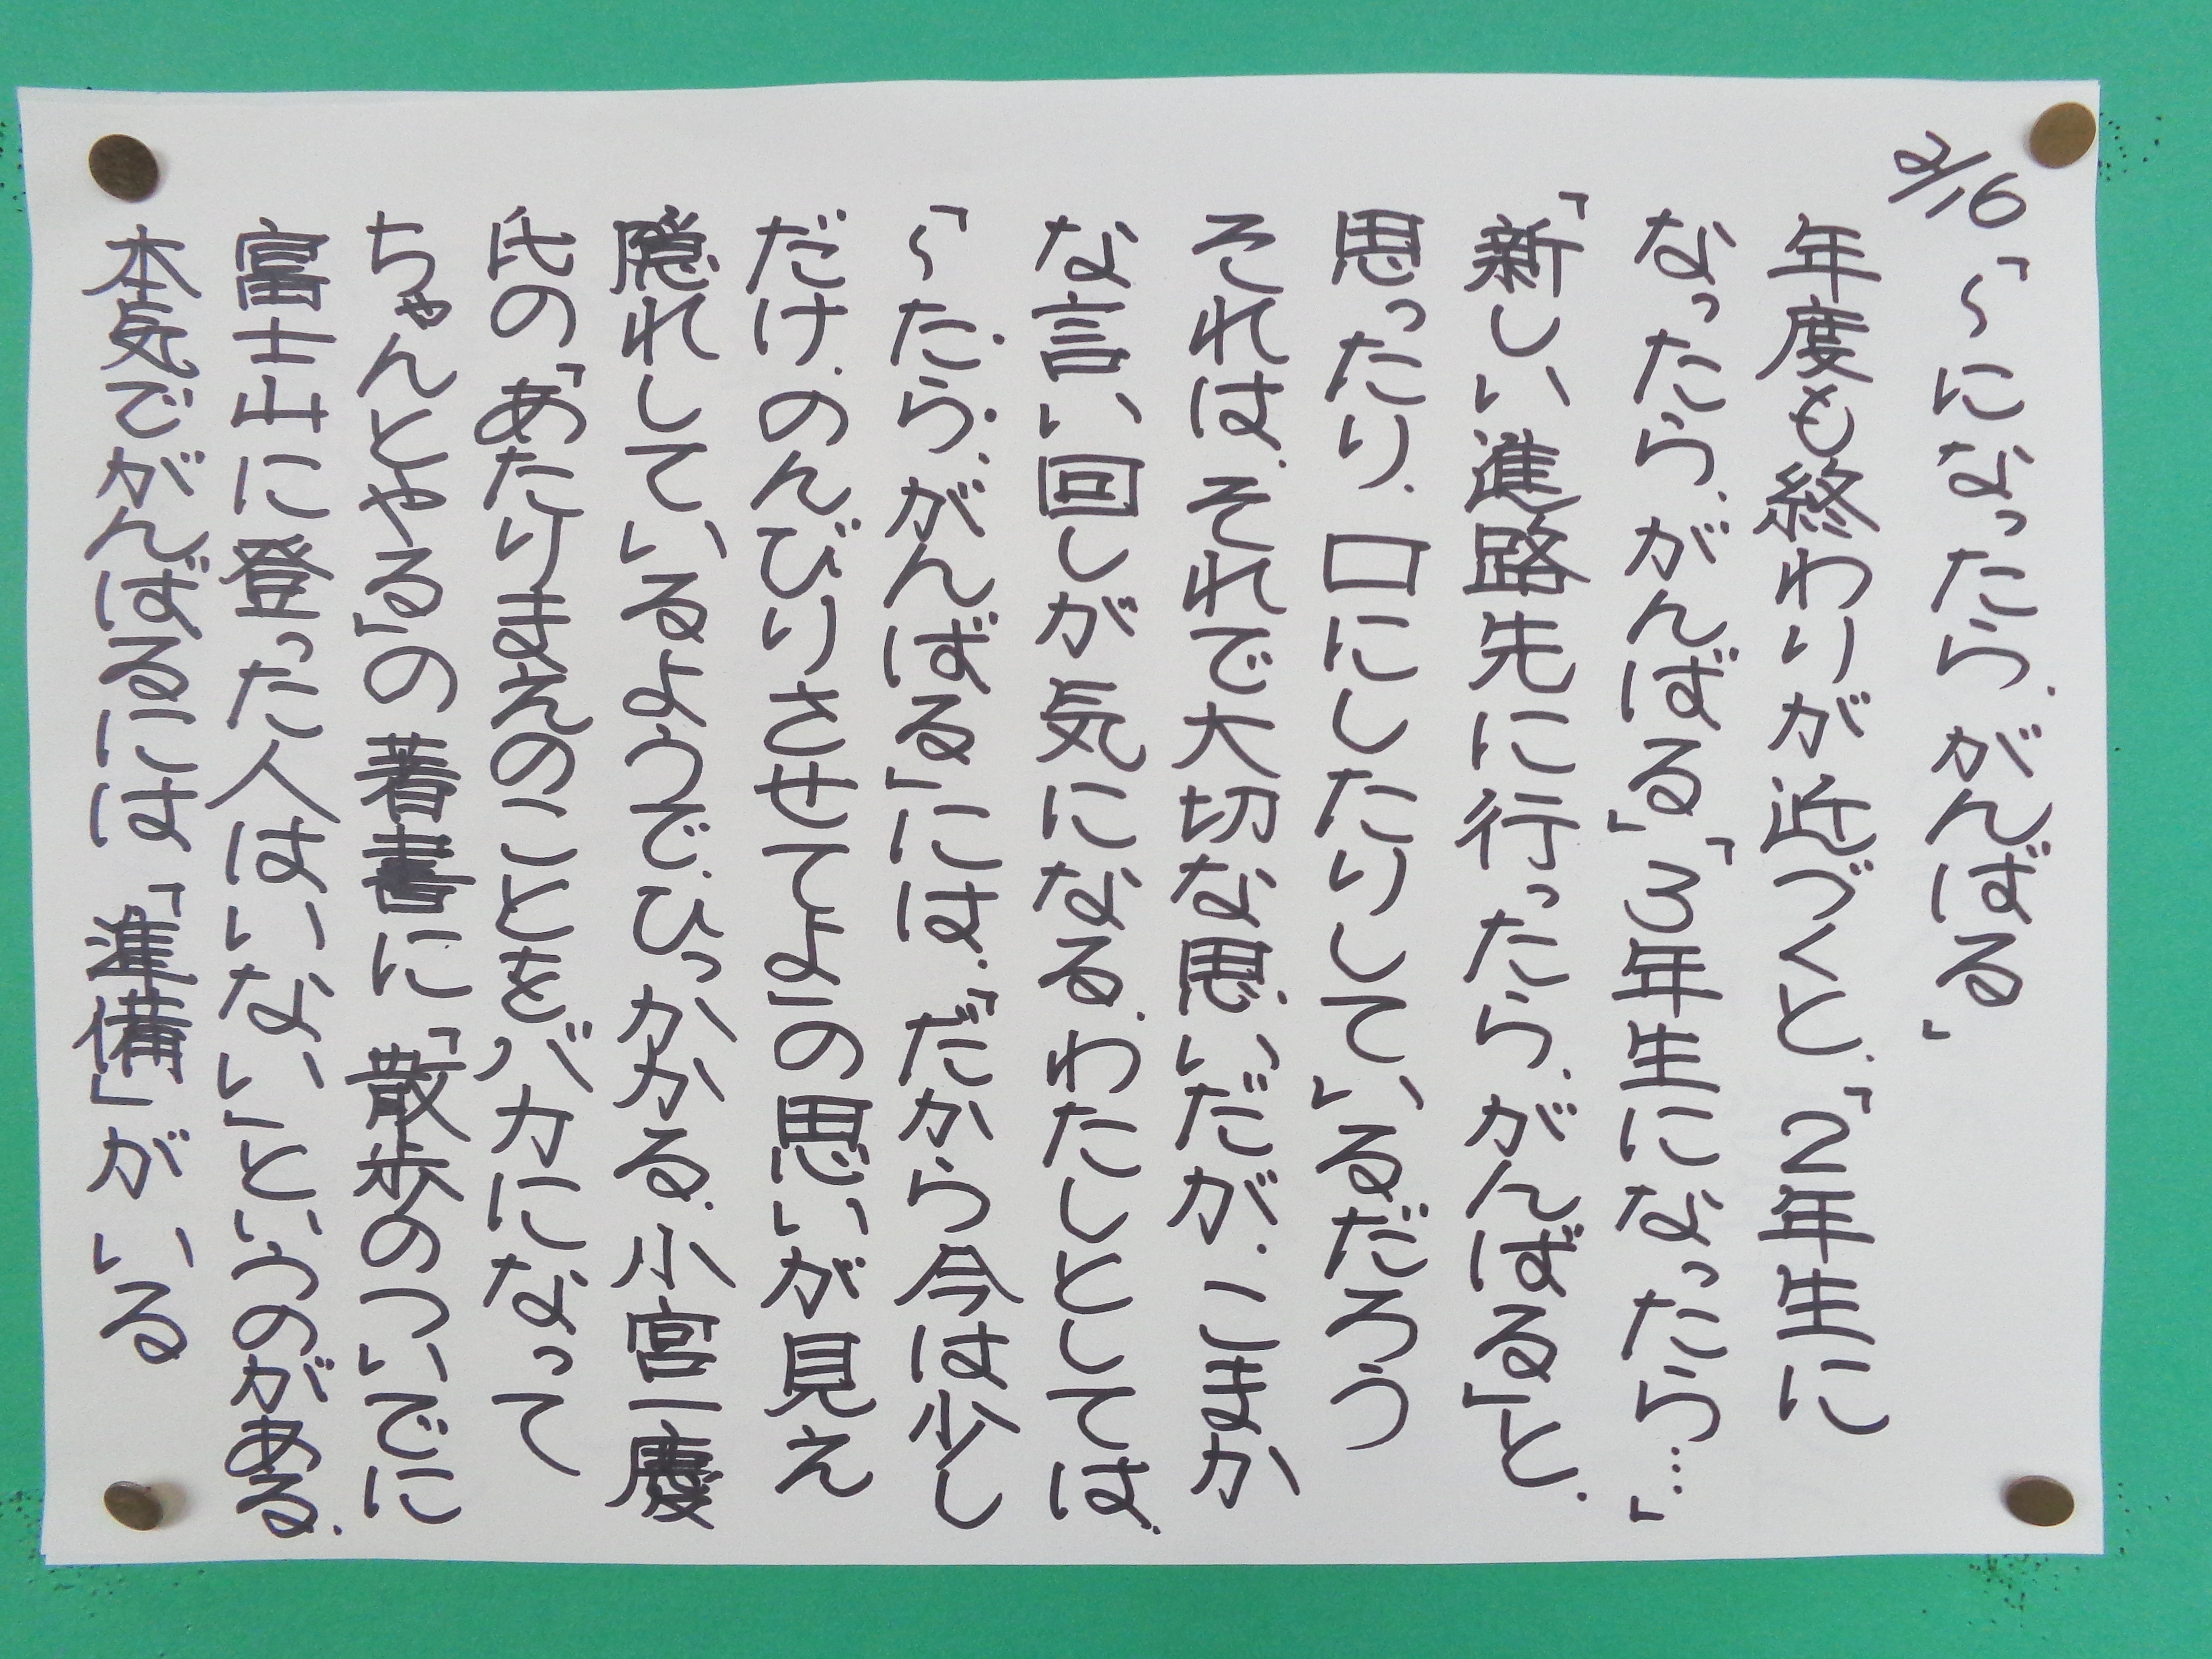 2/16
「～になったら、がんばる」
年度も終わりが近づくと、「2年生に
なったら、がんばる」「3年生になったら…」
「新しい進路先に行ったら、がんばる」と、
思ったり、口にしたりしているだろう
それは、それで大切な思いだが、こまか
な言い回しが気になる、わたしとしては、
「～たら、がんばる」には、「だから今は少し
だけ、のんびりさせてよ」の思いが見え
隠れしているようで、ひっかかる、小宮一慶
氏の「あたりまえのことをバカになって
ちゃんとやる」の著書に「散歩のついでに
富士山に登った人はいない」というのがある、
本気でがんばるには「準備」がいる